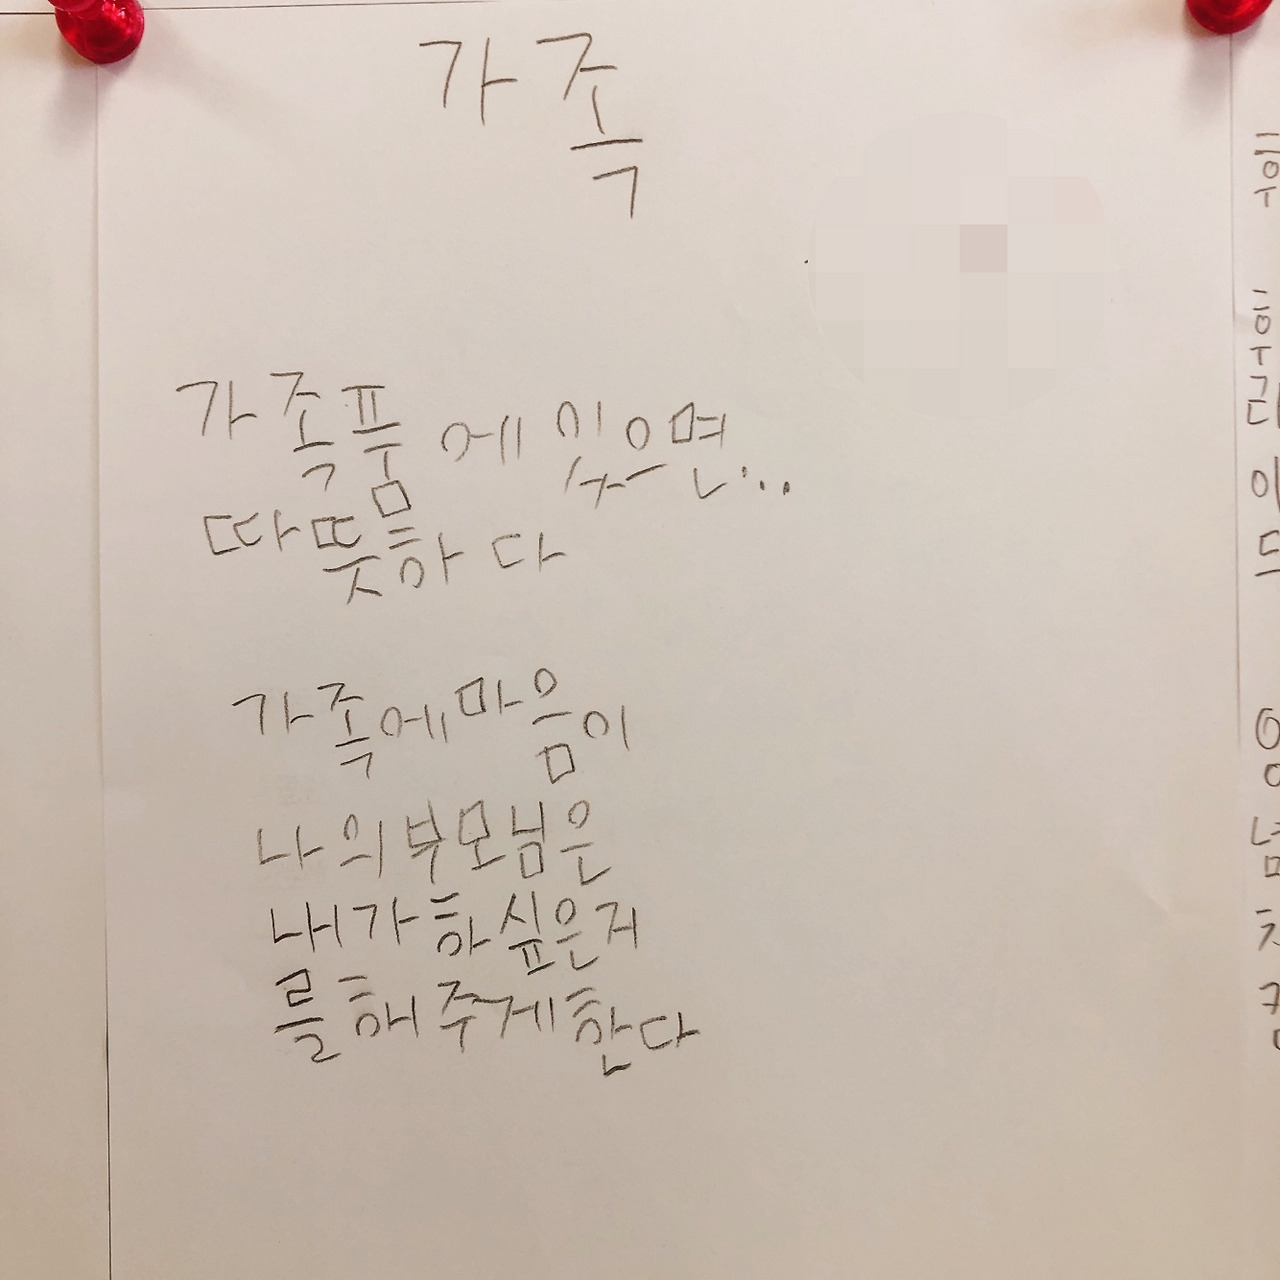 가족
가족품에 잇으면...
따뜻하다
가족에마음이
나의부모님은
내가하싶은거
를해주게한다